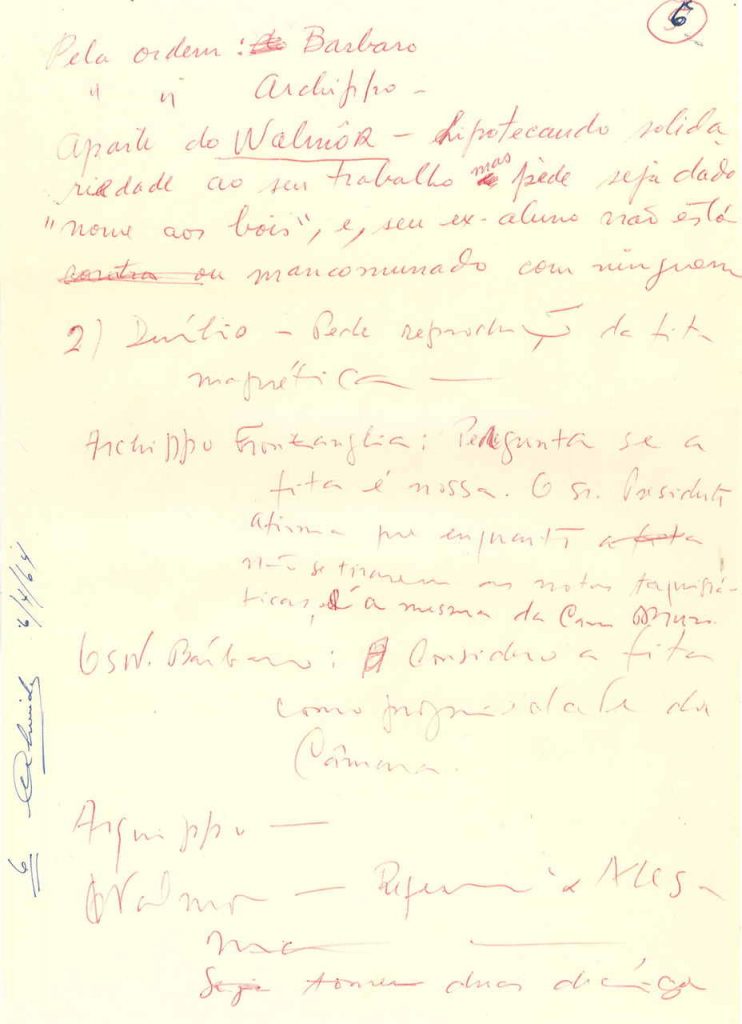 6
Pela ordem: Barbaro
" " Archippo -
Aparte do Walmôr - hipotecando solida
riedade ao seu trabalho mas pede seja dado
"nome aos bois", e, seu ex-aluno não está
contra ou mancomunado com ninguem
2) Duílio - Pede reprodução da fita
magnética —
Archippo Fronzaglia: Pergunta se a
fita é nossa. O sr. Presidente
afirma que enquanto a fita
não se tirarem as notas taquigrá-
ficas, é a mesma da Cam
Osw. Bárbaro: Considero a fita
como propriedade da
Câmara.
Arquippo —
Walmor —
duas
6 6/4/64